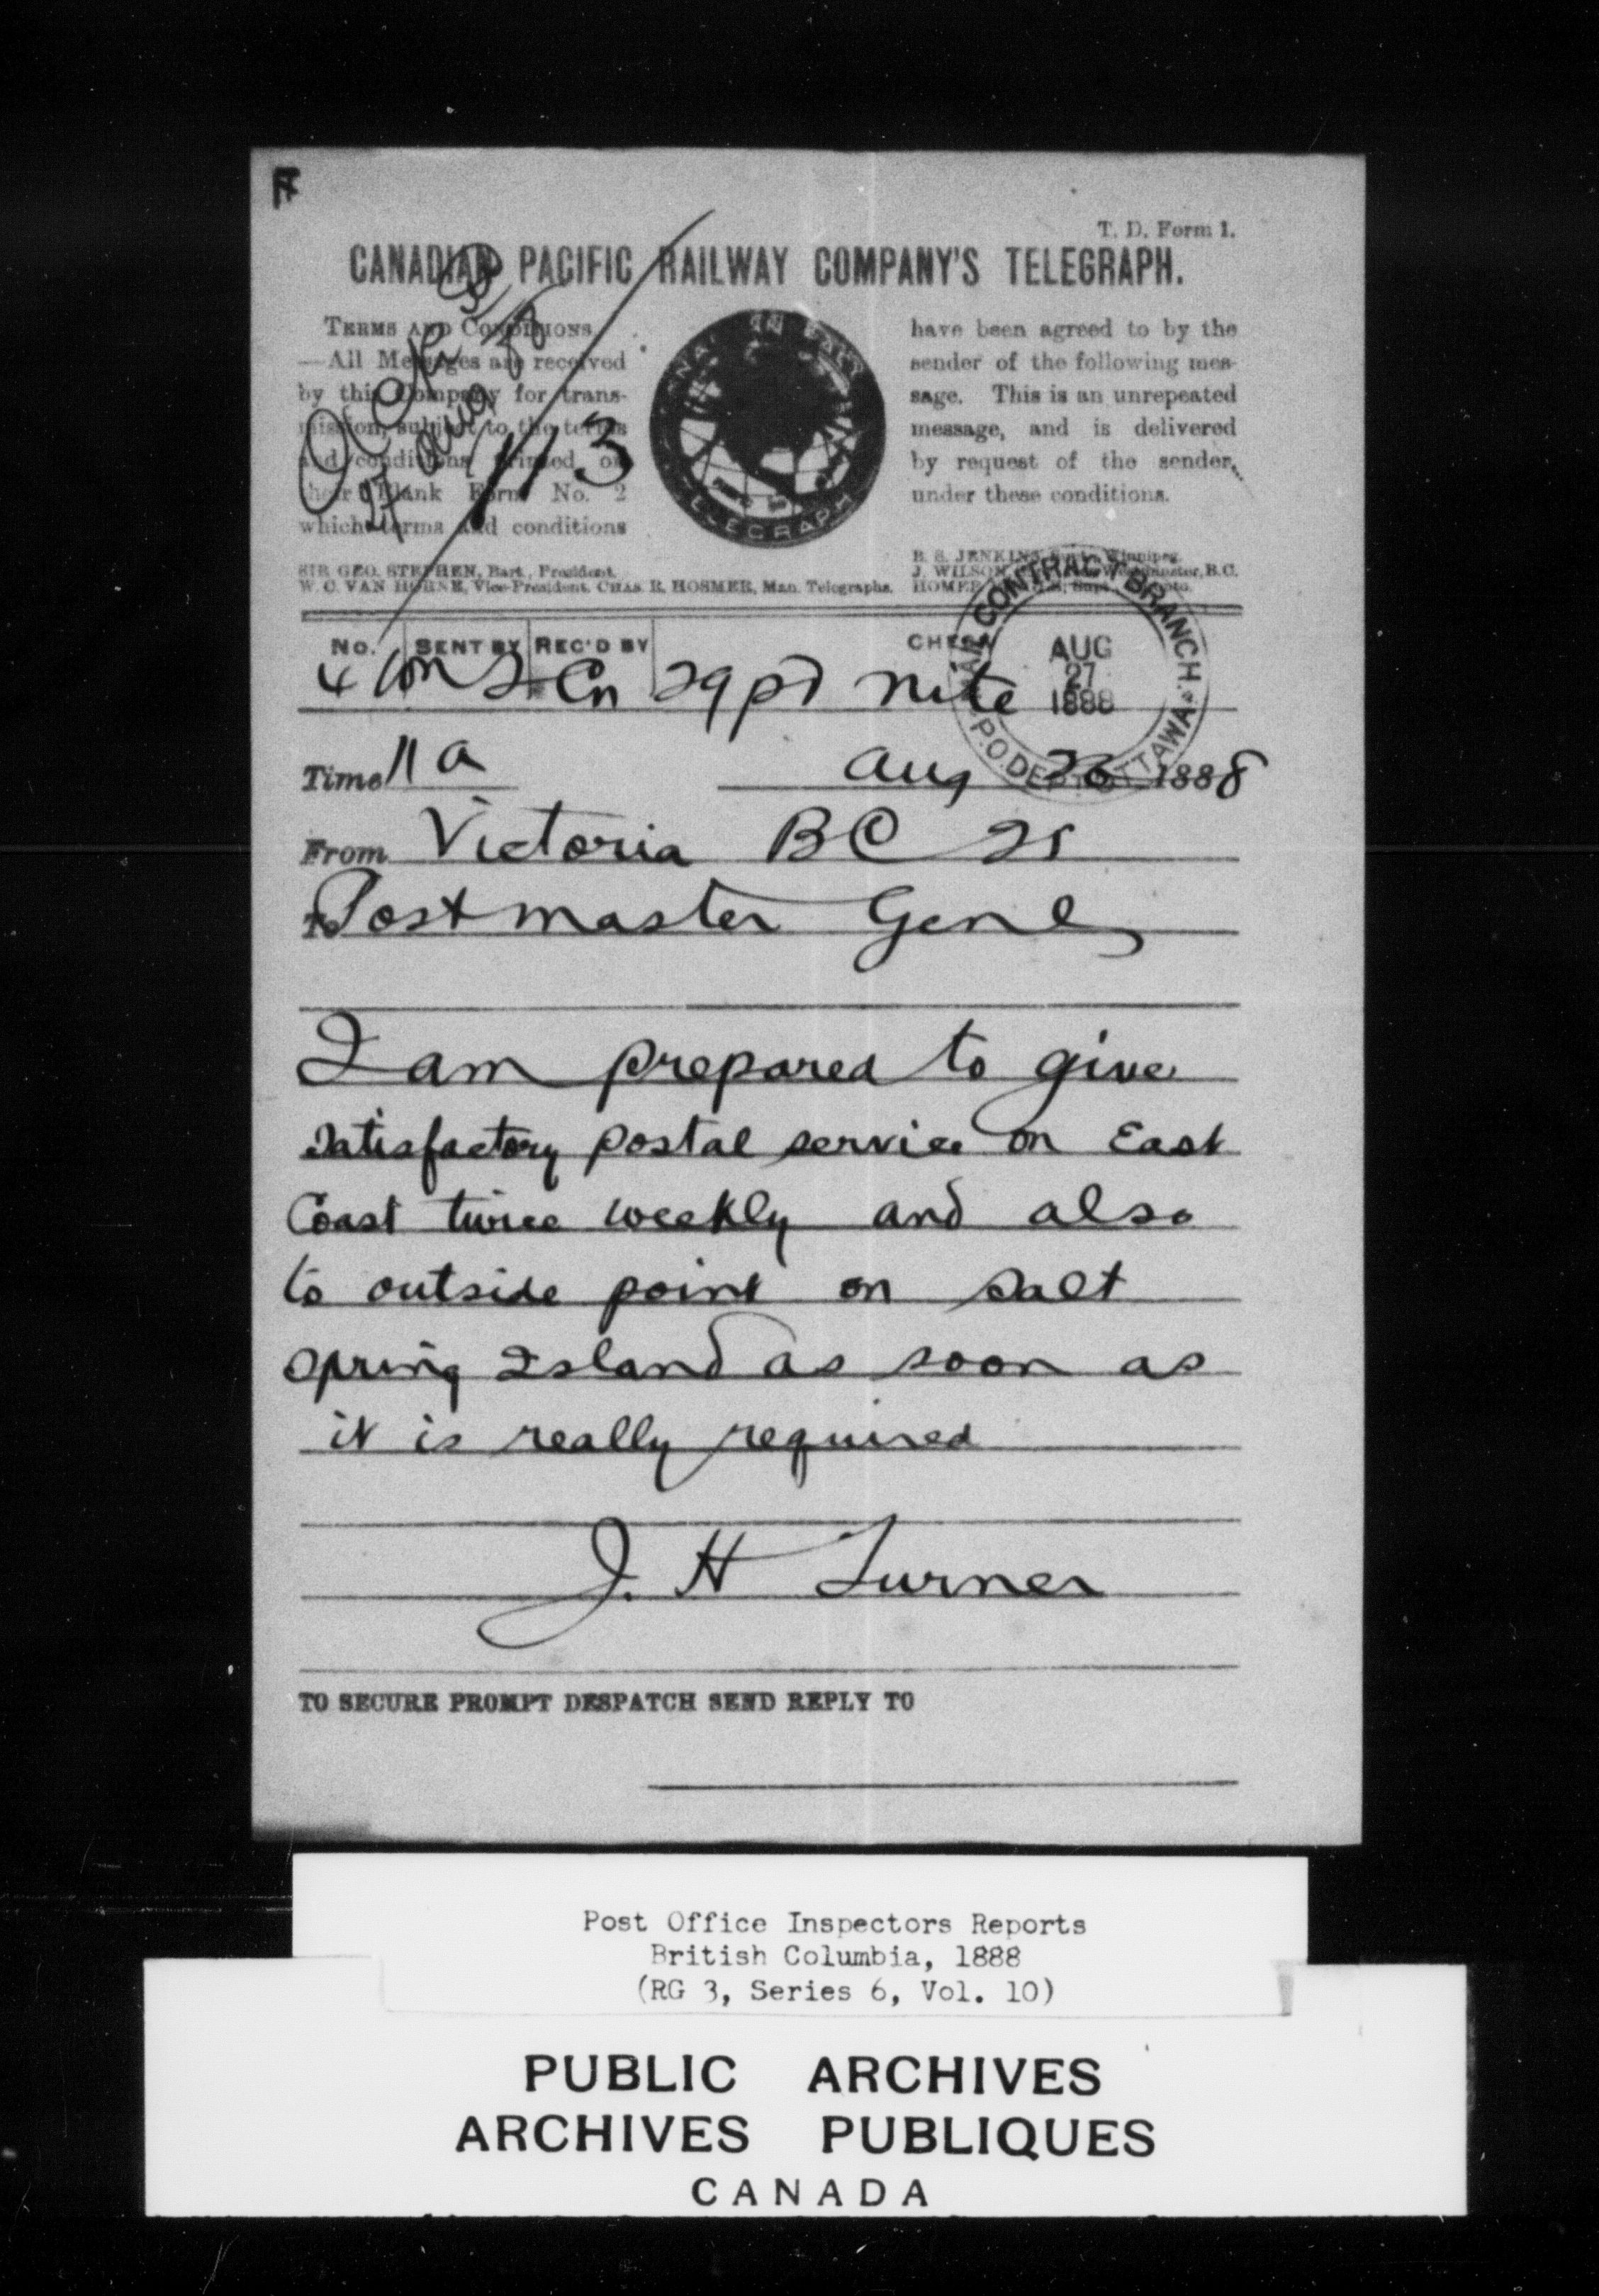 T. D. Form 1.
CANADIAN PACIFIC RAILWAY COMPANY'S TELEGRAPH.
TERMS AND CONDITIONS
—All Messages are received
by this Company for trans-
mission, subject to the terms
and conditions printed on
their Blank Form No. 2
which terms and conditions
have been agreed to by the
sender of the following mes-
sage. This is an unrepeated
message, and is delivered
by request of the sender,
under these conditions.
Ack'd
27 Aug 88
113
TELEGRAPH
SIR GEO. STEPHEN, Bart., President.
W. C. VAN HORNE, Vice-President. CHAS. R. HOSMER, Man. Telegraphs.
B. S. JENKINS, Supt., Winnipeg.
J. WILSON, Westminster, B.C.
HOMER Supt.
MAIL CONTRACT BRANCH.
AUG
27
1888
P.O. DEPT OTTAWA
No. SENT BY REC'D BY CHECK
4 Cn 29 pd nite
Time 11 a Aug 26 1888
From Victoria BC 25
To Postmaster Genl
I am prepared to give
satisfactory postal service on East
Coast twice weekly and also
to outside point on Salt
Spring Island as soon as
it is really required
J. H Turner
TO SECURE PROMPT DESPATCH SEND REPLY TO
Post Office Inspectors Reports
British Columbia, 1888
(RG 3, Series 6, Vol. 10)
PUBLIC ARCHIVES
ARCHIVES PUBLIQUES
CANADA